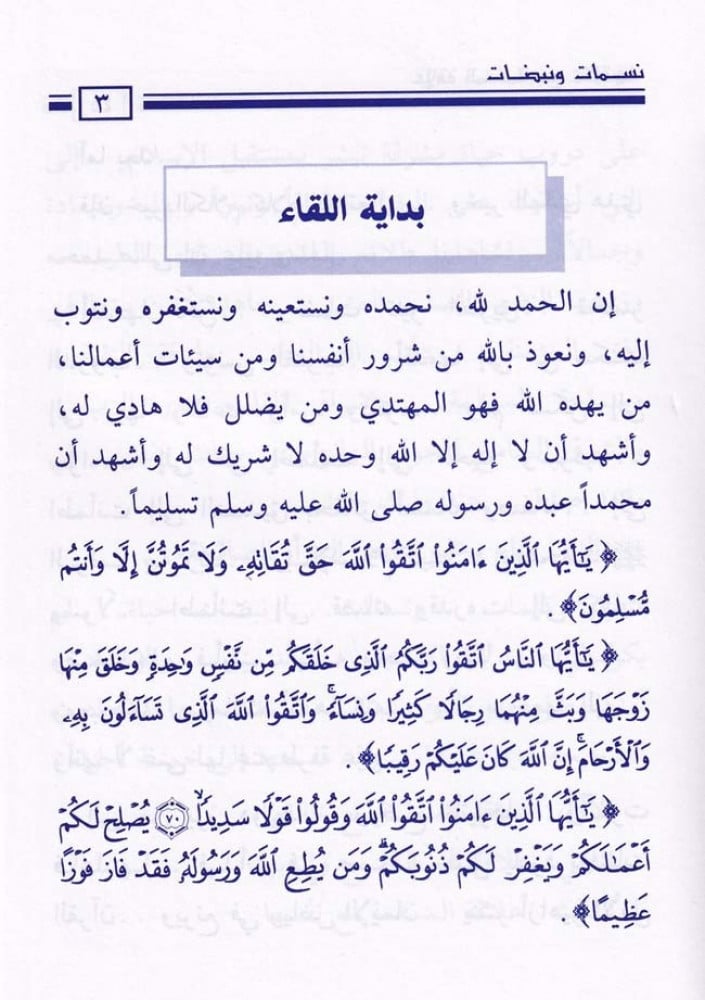 نسمات ونبضات
٣
بداية اللقاء
إن الحمد لله، نحمده ونستعينه ونستغفره ونتوب
إليه، ونعوذ بالله من شرور أنفسنا ومن سيئات أعمالنا،
من يهده الله فهو المهتدي ومن يضلل فلا هادي له،
وأشهد أن لا إله إلا الله وحده لا شريك له وأشهد أن
محمداً عبده ورسوله صلى الله عليه وسلم تسليماً.
﴿ يَٰٓأَيُّهَا ٱلَّذِينَ ءَامَنُوا۟ ٱتَّقُوا۟ ٱللَّهَ حَقَّ تُقَاتِهِۦ وَلَا تَمُوتُنَّ إِلَّا وَأَنتُم
مُّسْلِمُونَ﴾ .
﴿ يَٰٓأَيُّهَا ٱلنَّاسُ ٱتَّقُوا۟ رَبَّكُمُ ٱلَّذِى خَلَقَكُم مِّن نَّفْسٍ وَٰحِدَةٍ وَخَلَقَ مِنْهَا
زَوْجَهَا وَبَثَّ مِنْهُمَا رِجَالًا كَثِيرًا وَنِسَآءً ۚ وَٱتَّقُوا۟ ٱللَّهَ ٱلَّذِى تَسَآءَلُونَ بِهِۦ
وَٱلْأَرْحَامَ ۚ إِنَّ ٱللَّهَ كَانَ عَلَيْكُمْ رَقِيبًا﴾ .
﴿ يَٰٓأَيُّهَا ٱلَّذِينَ ءَامَنُوا۟ ٱتَّقُوا۟ ٱللَّهَ وَقُولُوا۟ قَوْلًا سَدِيدًا ﴿٧٠﴾ يُصْلِحْ لَكُمْ
أَعْمَٰلَكُمْ وَيَغْفِرْ لَكُمْ ذُنُوبَكُمْ ۗ وَمَن يُطِعِ ٱللَّهَ وَرَسُولَهُۥ فَقَدْ فَازَ فَوْزًا
عَظِيمًا﴾ .